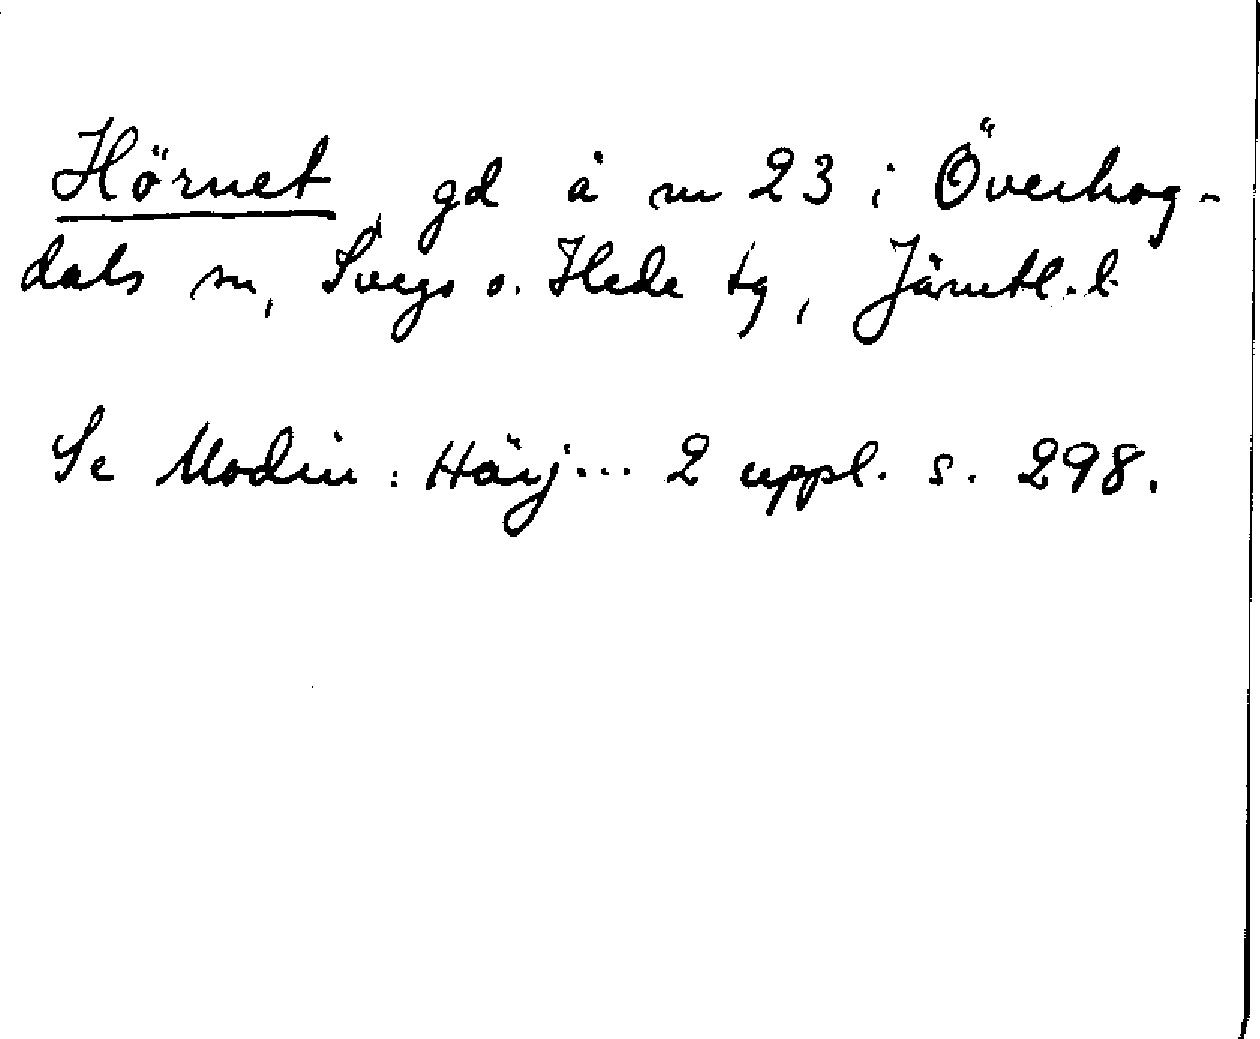 Hörnet gd å nr 23 i Överhog-
dals sn, Svegs o. Hede tg, Jämtl. l.
Se Modin: Härj... 2 uppl. s. 298.